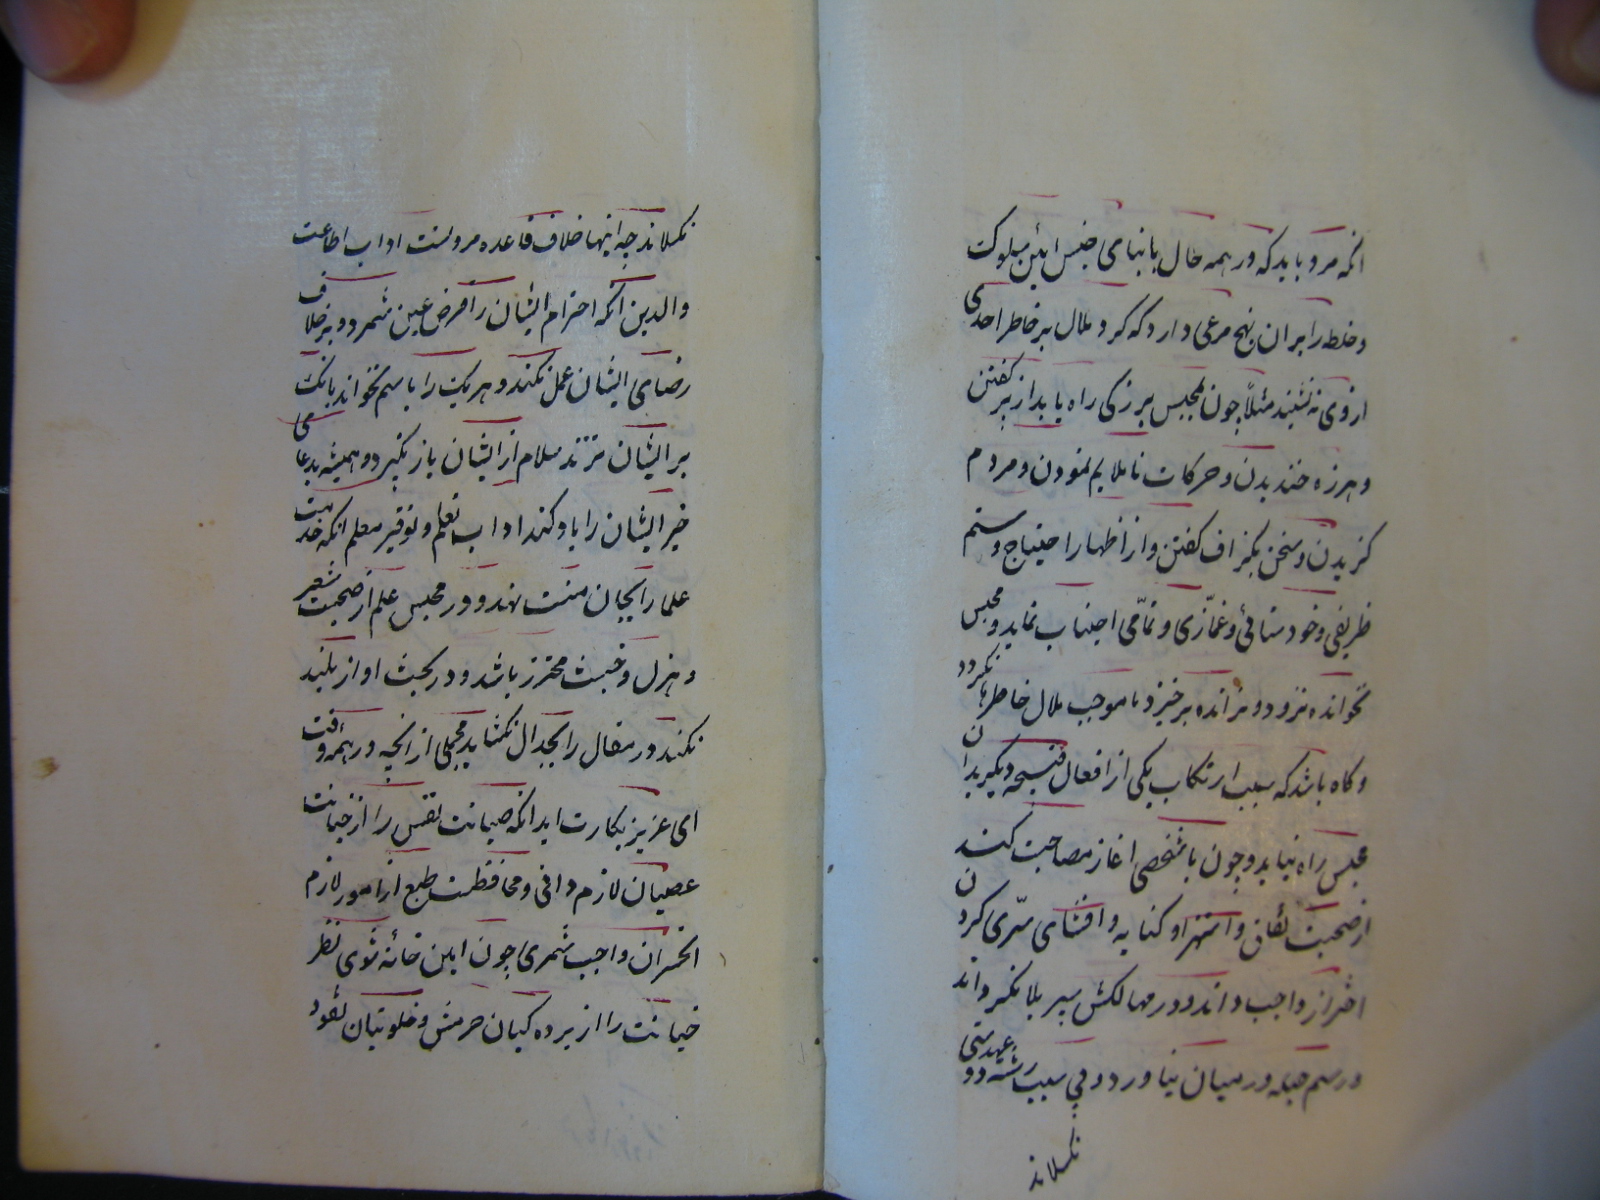 انکه مرد باید که در همه حال با بنای جنس این سلوک
و خلطه را بران نهج مرعی دارد که کرد ملال بر خاطر احدی
ازوی نه نشیند مثلا چون بمجلس بزرکی راه یابد از پر کفتن
و هرزه خندیدن و حرکات ناملایم نمودن و مردم
کزیدن و سخن بکزاف کفتن و از اظهار احتیاج و ستم
ظریفی و خود ستائی و غمّازی و نمّامی اجتناب نماید و مجلس
نخوانده نرود و نرانده برخیزد تا موجب ملال خاطرها نکردد
و کاه باشد که بسبب ارتکاب یکی از افعال قبیحه دیکر بدان
مجلس راه نیابد و چون با شخصی اغاز مصاحبت کند
از صحبت نفاق و استهزا و کنایه و افشای سرّی کردن
احتراز واجب داند و در مهالکش سپر بلا نکرداند
و رسم حیله در میان نیاورد و بی سبب رشته دوستی عهد
نکسلاند
نکسلاند چه اینها خلاف قاعده مردیست اداب اطاعت
والدین انکه احترام ایشان را فرض عین شمرد و بر خلاف
رضای ایشان عمل نکند و هریک را باسم نخواند بانک
بر ایشان نزند سلام از ایشان باز نکیرد و همیشه بدعای
خیر ایشان را یاد کند اداب تعلم و توقیر معلم انکه خدمت
علما را بجان منت نهد و در مجلس علم از صحبت شعر
و هزل و خبث محترز باشد و در بحث اواز بلند
نکند در مقال را بجدال نکشاید مجملی از انچه در همه وقت
ای عزیز بکارت اید انکه صیانت نفس را از خیانت
عصیان لازم دانی و محافظت طبع از امور لازم
الخسران واجب شمری چون این خائنه شوی نظر
خیانت را از پرده کیان حرمش و خلوتیان نقود